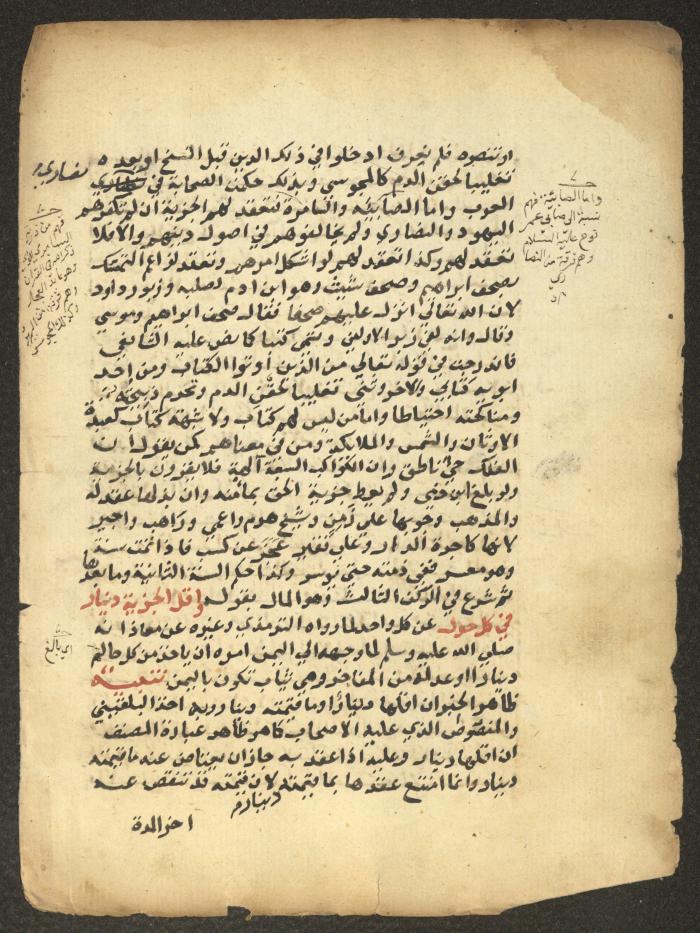 او تنصره فلم نعرف ادخلوا في ذلك الدين قبل النسخ او بعده
تغليبا لحقن الدم كالمجوسي وبذلك حكمت الصحابة في نصارى
العرب واما الصابئة والسامرة فتعقد لهم الجزية ان لم تكفرهم
اليهود والنصارى ولم يخالفوهم في اصول دينهم والا فلا
تعقد لهم وكذا تعقد لهم لو اشكل امرهم وتعقد لزاعم التمسك
بصحف ابراهيم وصحف شيث وهو ابن ادم لصلبه وزبور داود
لان الله تعالى انزل عليهم صحفا فقال صحف ابراهيم وموسى
وقال وانه لفي زبر الاولين وتسمى كتبا كما نص عليه الشافعي
فاندرجت في قوله تعالى من الذين اوتوا الكتاب ومن احد
ابويه كتابي والاخر وثني تغليبا لحقن الدم وتحرم ذبيحته
ومناكحته احتياطا واما من ليس لهم كتاب ولا شبهة كتاب كعبدة
الاوثان والشمس والملائكة ومن في معناهم كمن يقول ان
الفلك حي ناطق وان الكواكب السبعة آلهة فلا يقرون بالجزية
ولو بلغ ابن ذمي ولم يعط جزية الحق بمأمنه وان بذلها عقد له
والمذهب وجوبها على زمن وشيخ هرم واعمى وراهب واجير
لانها كاجرة الدار وعلى فقير عجز عن كسب فاذا تمت سنة
وهو معسر ففي ذمته حتى يوسر وكذا حكم السنة الثانية وما بعدها
ثم شرع في الركن الثالث وهو المال بقوله واقل الجزية دينار
في كل حول عن كل واحد لما رواه الترمذي وغيره عن معاذ انه
صلى الله عليه وسلم لما وجهه الى اليمن امره ان ياخذ من كل حالم
دينارا او عدله من المعافر وهي ثياب تكون باليمن تنبيه
ظاهر الخبر ان اقلها دينار او ما قيمته دينار وبه اخذ البلقيني
والمنصوص الذي عليه الاصحاب كما هو ظاهر عبارة المصنف
ان اقلها دينار وعليه اذا عقد به جاز ان يعتاض عنه ما قيمته
دينار وانما امتنع عقدها بما قيمته لان قيمته قد تنقص عنه
دينار
اخر المدة
نصارى
واما الصابئة فهم
نسبة الى صابي عم
نوح عليه السلام
وهم فرقة من النصا
رى
اي بالغ